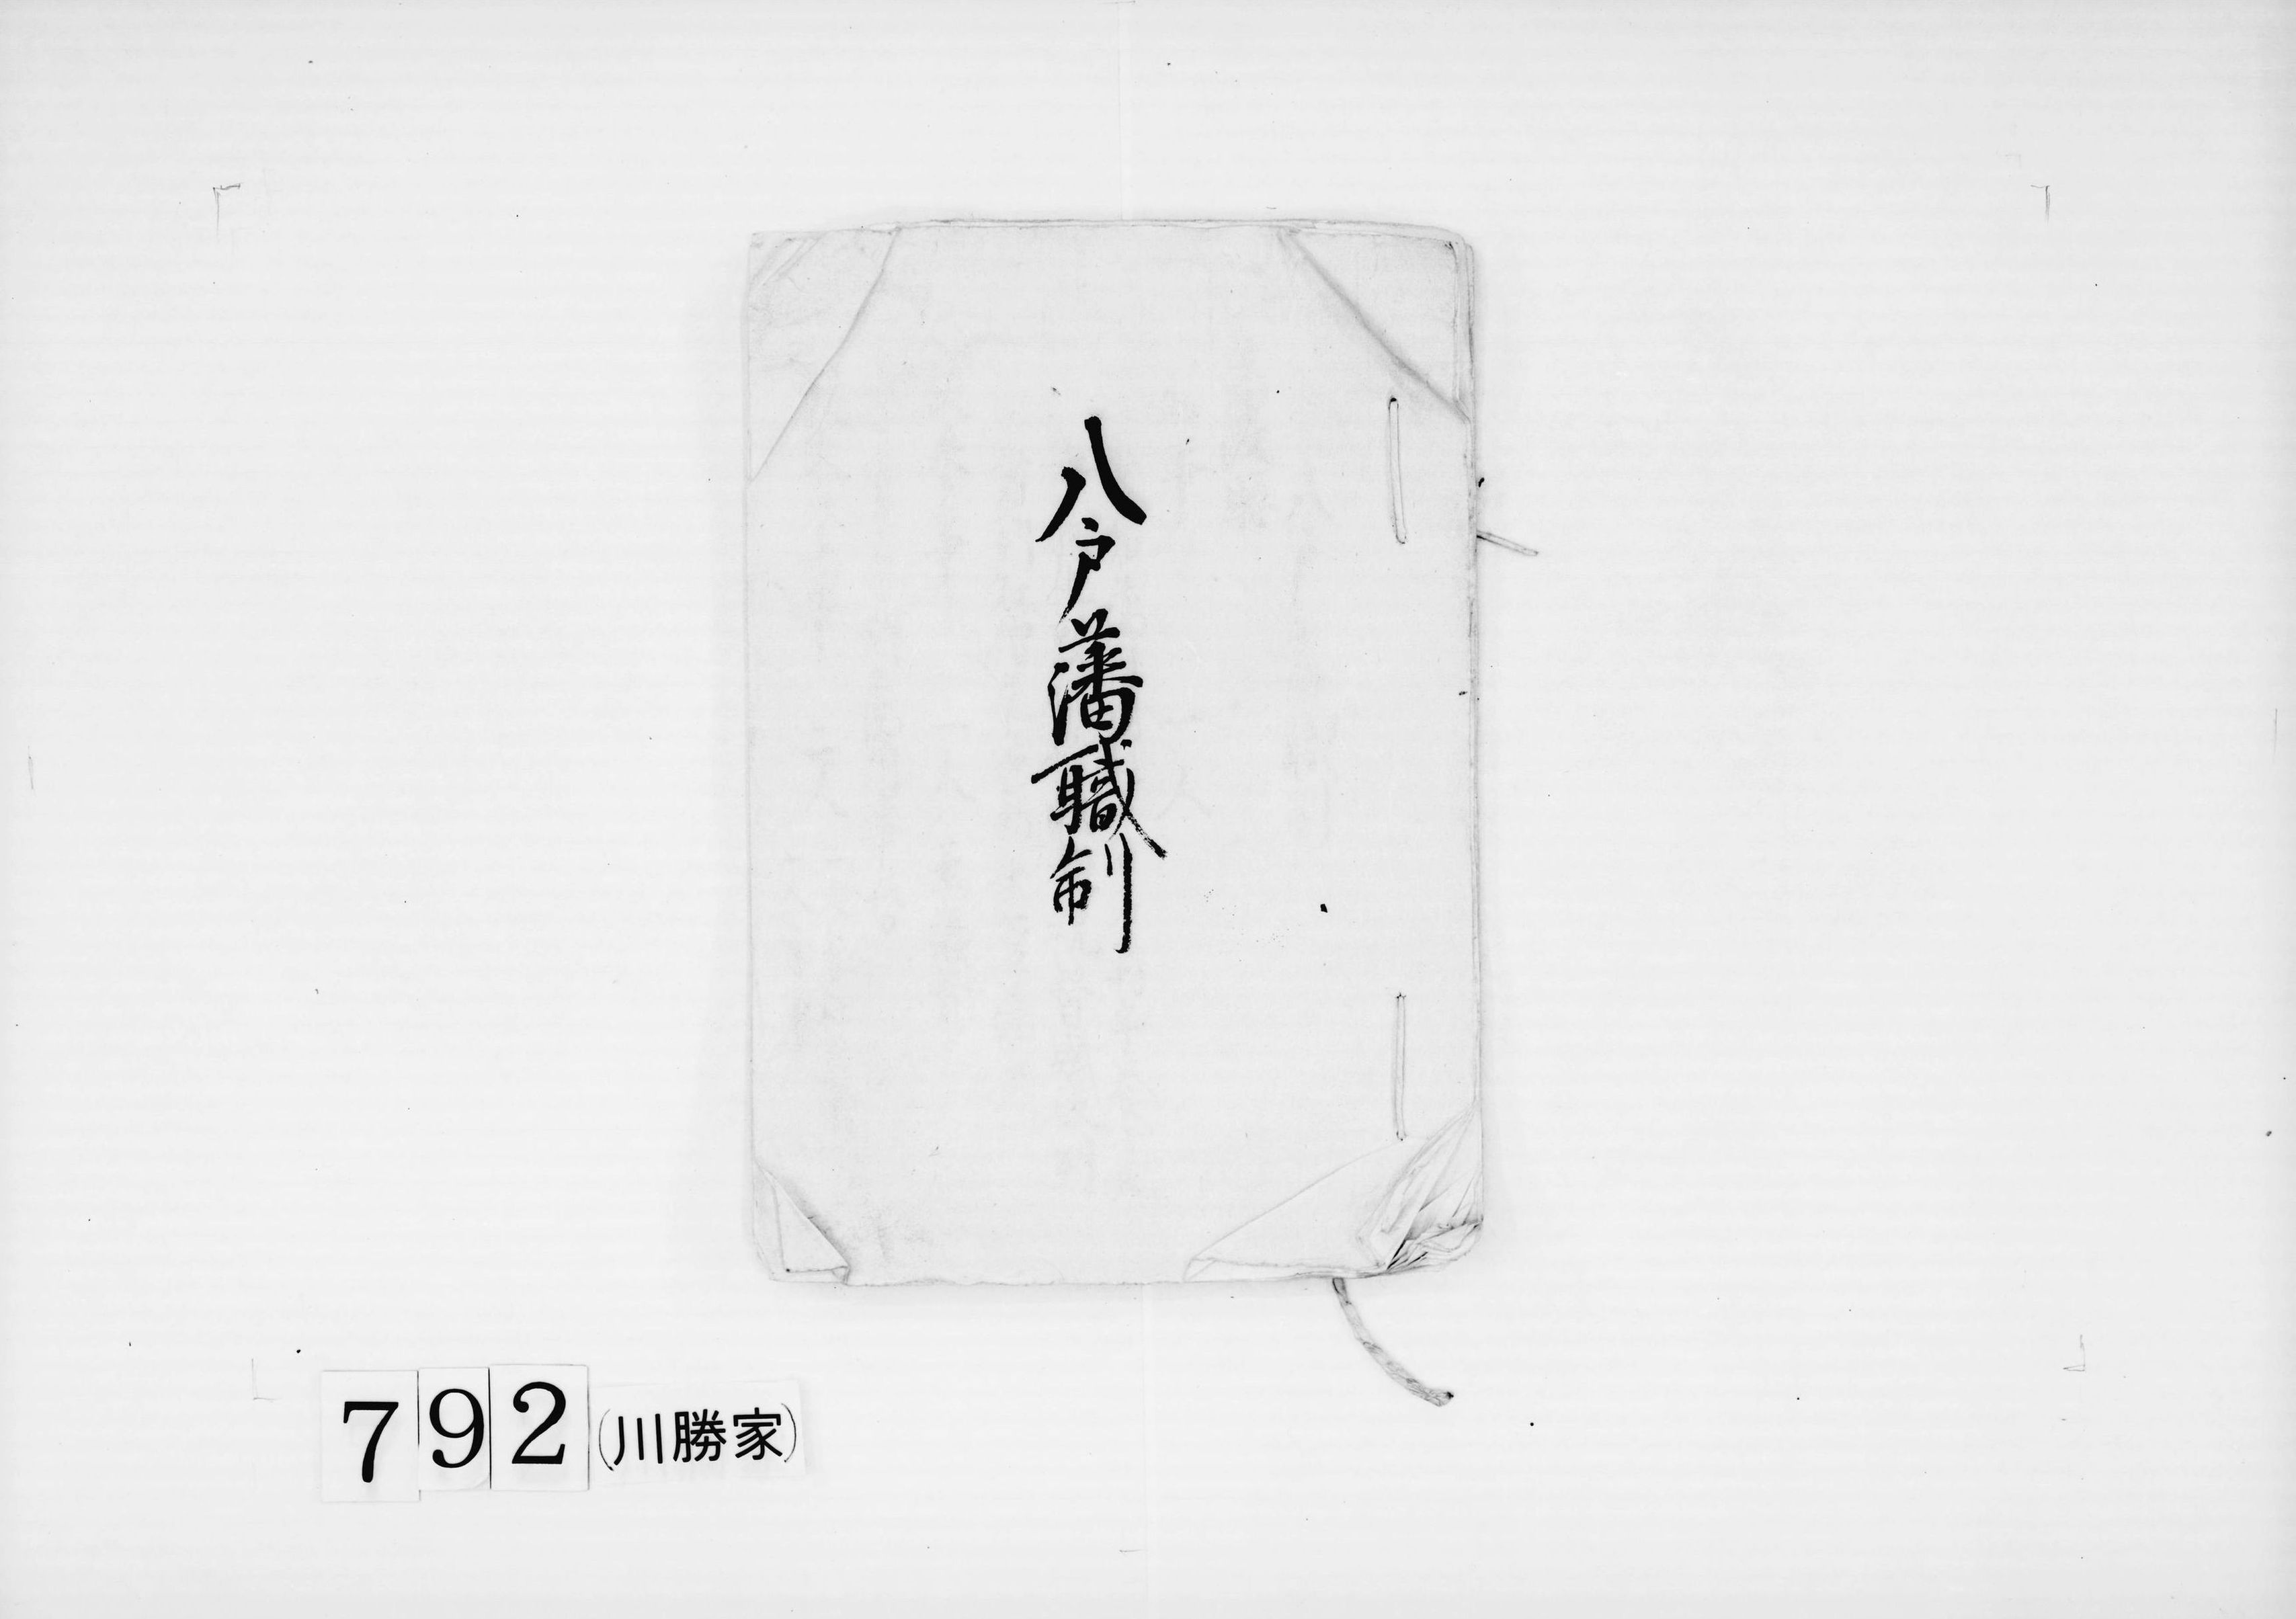 八戸藩職制
792(川勝家)